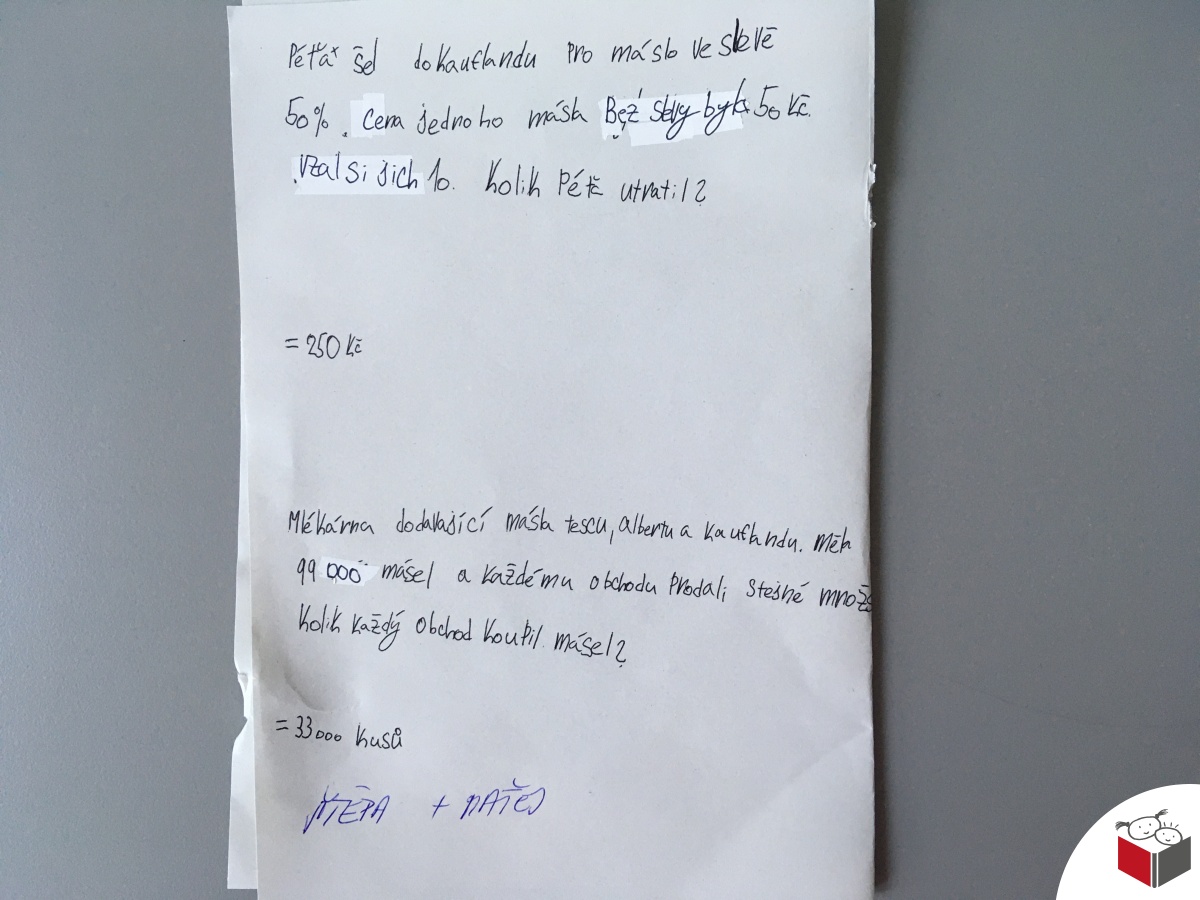 Péťa šel do Kauflandu pro máslo ve slevě
50%. Cena jednoho másla Bez slevy byla 50 Kč.
Vzal si jich 10. Kolik Péťa utratil?
= 250 Kč
Mlékárna dodavající másla tescu, albertu a kauflandu. Měla
99 000 másel a každému obchodu Prodali stejné množs
Kolik každý obchod koupil másel?
= 33 000 kusů
ŠTĚPA + MATĚJ